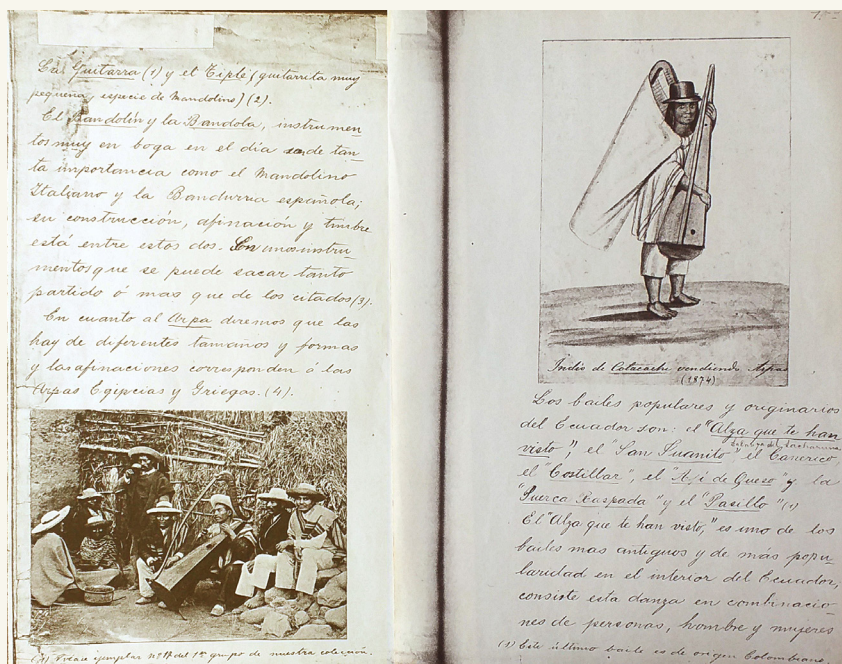 La Guitarra (1) y el Tiple (guitarrita muy
pequeña, especie de Mandolino) (2).
El Bandolin y la Bandola, instrumen
tos muy en boga en el dia de tan
ta importancia como el Mandolino
Italiano y la Bandurria española;
su construcción, afinación y timbre
está entre estos dos. En unos instru
mentos que se puede sacar tanto
partido ó mas que de los citados (3).
En cuanto al Arpa diremos que las
hay de diferentes tamaños y formas
y las afinaciones corresponden á las
Arpas Egipcias y Griegas. (4).
ejemplar nº del 1er grupo de nuestra colección.
Indio de Cotacachi vendiendo Arpas
(1874)
Los bailes populares y originarios
del Ecuador son: el "Alza que te han
visto", el "San Juanito" el
el "Costillar", el "Aji de Queso" y la
"Puerca Raspada" y el "Pasillo" (1)
El "Alza que te han visto," es uno de los
bailes mas antiguos y de más popu-
laridad en el interior del Ecuador,
consiste esta danza en combinacio-
nes de personas, hombre y mujeres
(1) Este último baile es de origen Colombiano.